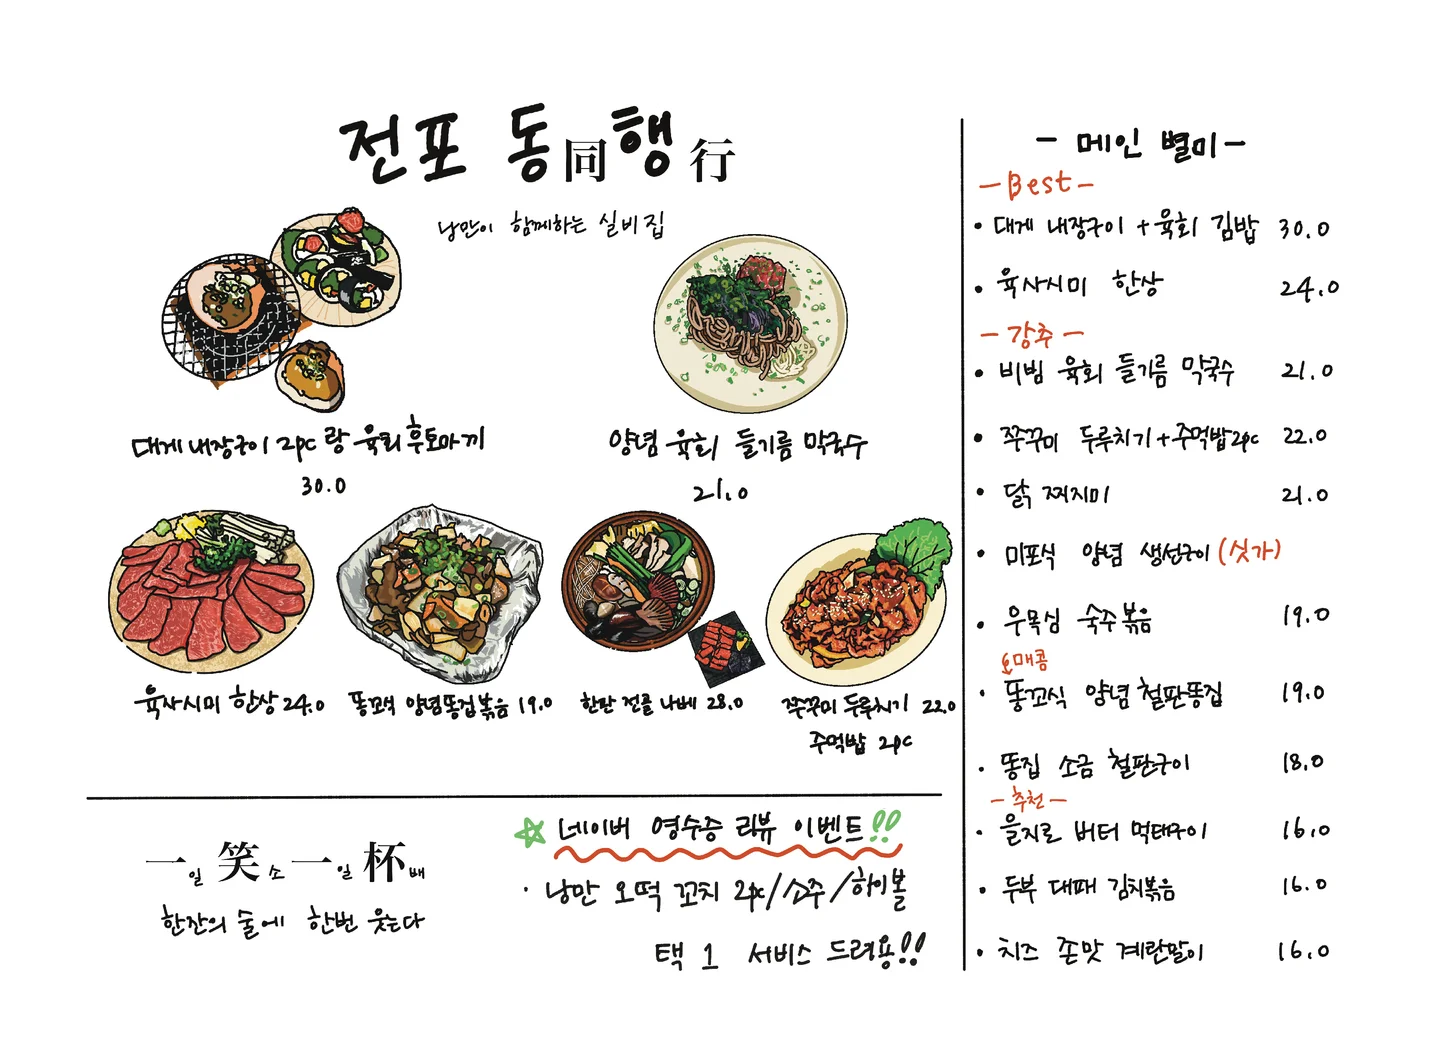 전포 동同행行
낭만이 함께하는 실비집
대게 내장구이 2pc 랑 육회 후토마끼
30.0
양념 육회 들기름 막국수
21.0
육사시미 한상 24.0
똥꼬색 양념똥집볶음 19.0
한판 전골 나베 28.0
쭈꾸미 두루치기 22.0
주먹밥 2pc
一일 笑소 一일 杯배
한잔의 술에 한번 웃는다
☆ 네이버 영수증 리뷰 이벤트!!
· 낭만 오떡 꼬치 2pc/소주/하이볼
택 1 서비스 드려용!!
- 메인 별미 -
- Best -
• 대게 내장구이 + 육회 김밥 30.0
• 육사시미 한상 24.0
- 강추 -
• 비빔 육회 들기름 막국수 21.0
• 쭈꾸미 두루치기 + 주먹밥 2pc 22.0
• 닭 찌지미 21.0
• 미포식 양념 생선구이 (싯가)
• 우목심 숙주볶음 19.0
매콤
• 똥꼬식 양념 철판똥집 19.0
• 똥집 소금 철판구이 18.0
- 추천 -
• 을지로 버터 먹태구이 16.0
• 두부 대패 김치볶음 16.0
• 치즈 존맛 계란말이 16.0